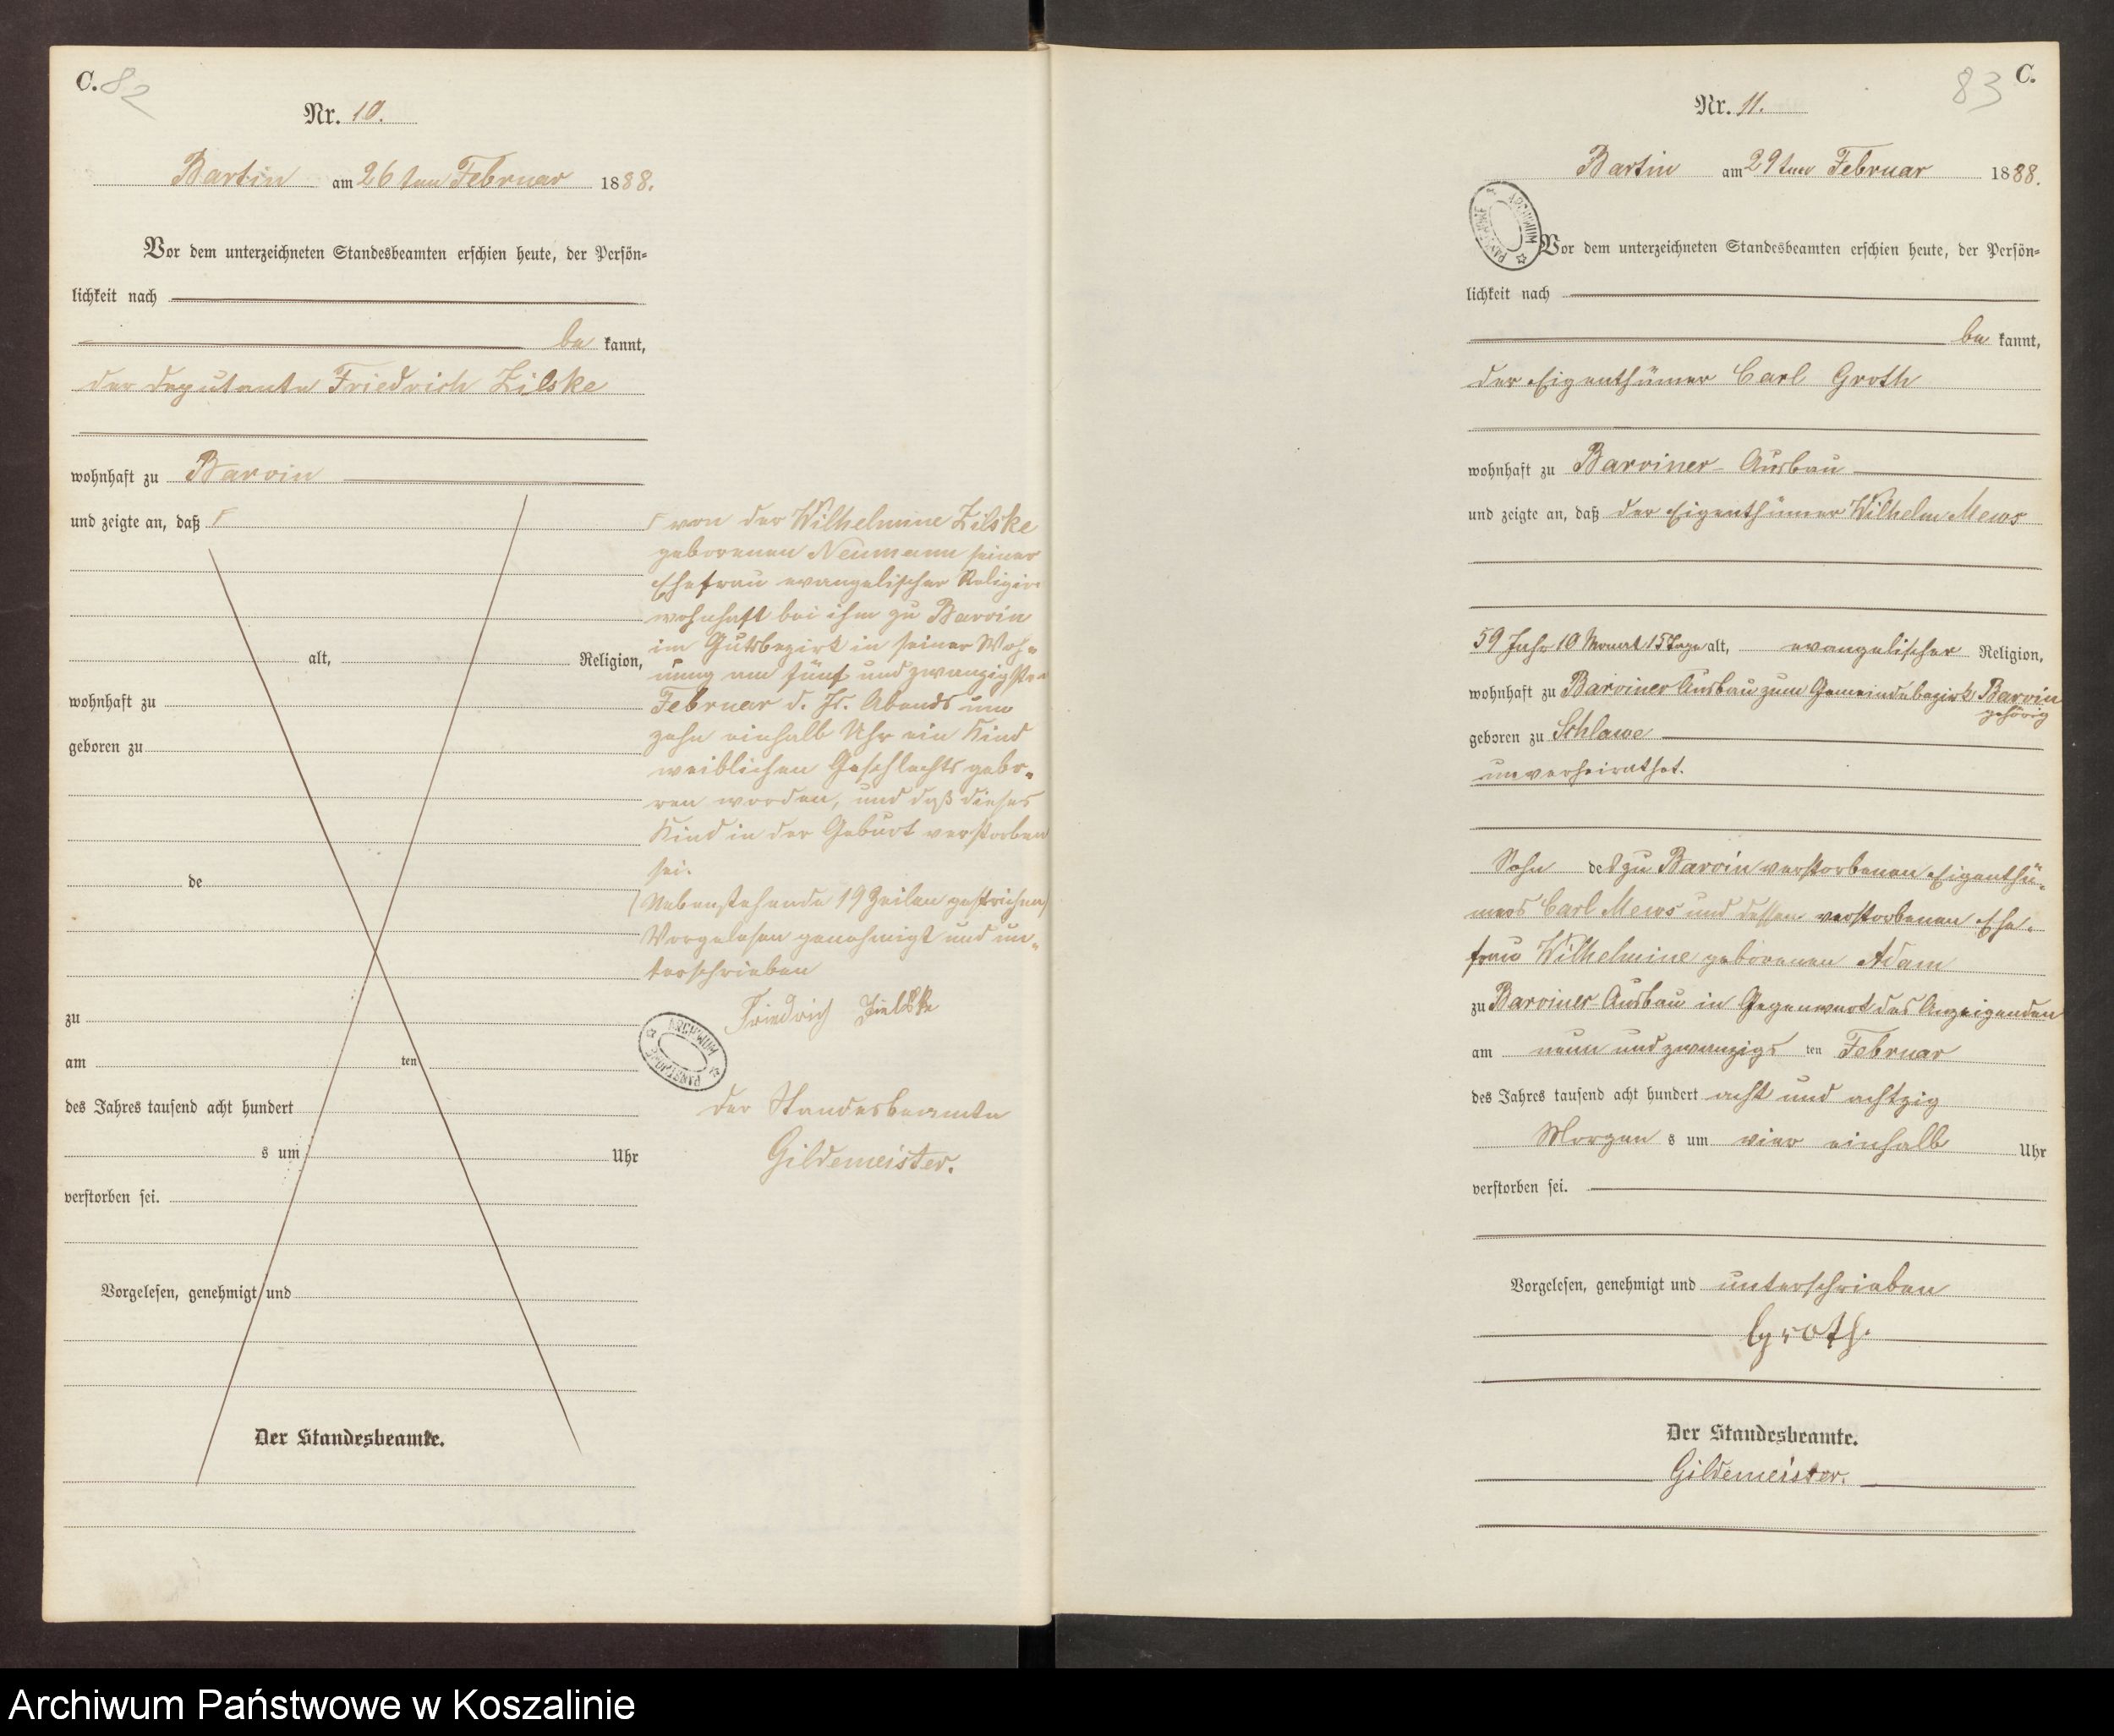 C. 82
Nr. 10.
Bartin am 26ten Februar 1888.
Vor dem unterzeichneten Standesbeamten erschien heute, der Persön=
lichkeit nach
be kannt,
der Deputante Friedrich Zilske
wohnhaft zu Barvin
und zeigte an, daß
alt, Religion,
wohnhaft zu
geboren zu
de
zu
am ten
des Jahres tausend acht hundert
s um Uhr
verstorben sei.
Vorgelesen, genehmigt und
Der Standesbeamte.
von der Wilhelmine Zilske
geborenen Neumann seiner
Ehefrau evangelischer Religion
wohnhaft bei ihm zu Barvin
im Gutsbezirk in seiner Woh=
nung am fünf und zwanzigsten
Februar d. Js. Abends um
zehn einhalb Uhr ein Kind
weiblichen Geschlechts gebo=
ren worden, und daß dieses
Kind in der Geburt verstorben
sei.
Nebenstehende 19 Zeilen gestrichen
Vorgelesen genehmigt und un=
terschrieben
Friedrich Zielske
ARCHIWUM PAŃSTWOWE
Der Standesbeamte
Gildemeister.
83 C.
Nr. 11.
Bartin am 29ten Februar 1888.
ARCHIWUM PAŃSTWOWE
Vor dem unterzeichneten Standesbeamten erschien heute, der Persön=
lichkeit nach
be kannt,
der Eigenthümer Carl Groth
wohnhaft zu Barviner Ausbau
und zeigte an, daß der Eigenthümer Wilhelm Mews
59 Jahr 10 Monat 15 Tage alt, evangelischer Religion,
wohnhaft zu Barviner Ausbau zum Gemeindebezirk Barvin
gehörig
geboren zu Schlawe
unverheirathet.
Sohn des zu Barvin verstorbenen Eigenthü=
mers Carl Mews und dessen verstorbenen Ehe=
frau Wilhelmine geborenen Adam
zu Barviner Ausbau in Gegenwart des Anzeigenden
am neun und zwanzigs ten Februar
des Jahres tausend acht hundert acht und achtzig
Morgen s um vier einhalb Uhr
verstorben sei.
Vorgelesen, genehmigt und unterschrieben
Groth.
Der Standesbeamte.
Gildemeister.
Archiwum Państwowe w Koszalinie